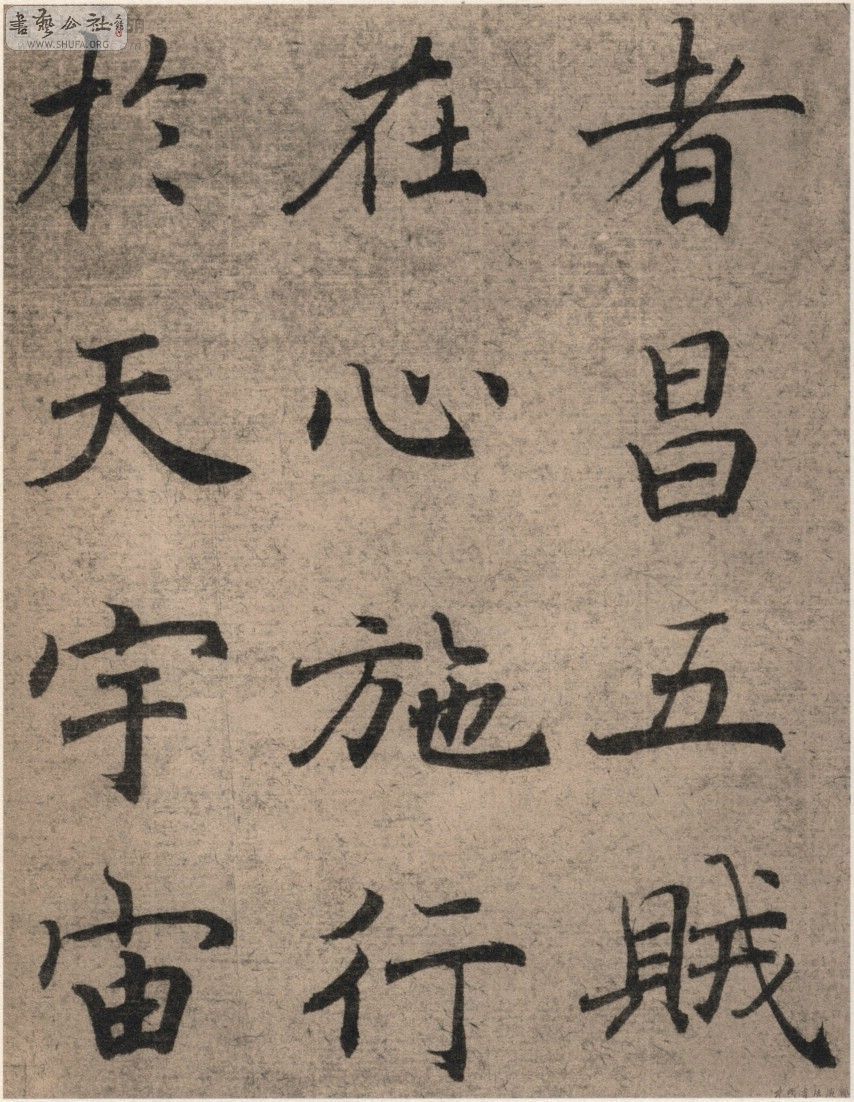 者昌五賊
在心施行
於天宇宙
書藝公社
WWW.SHUFA.ORG